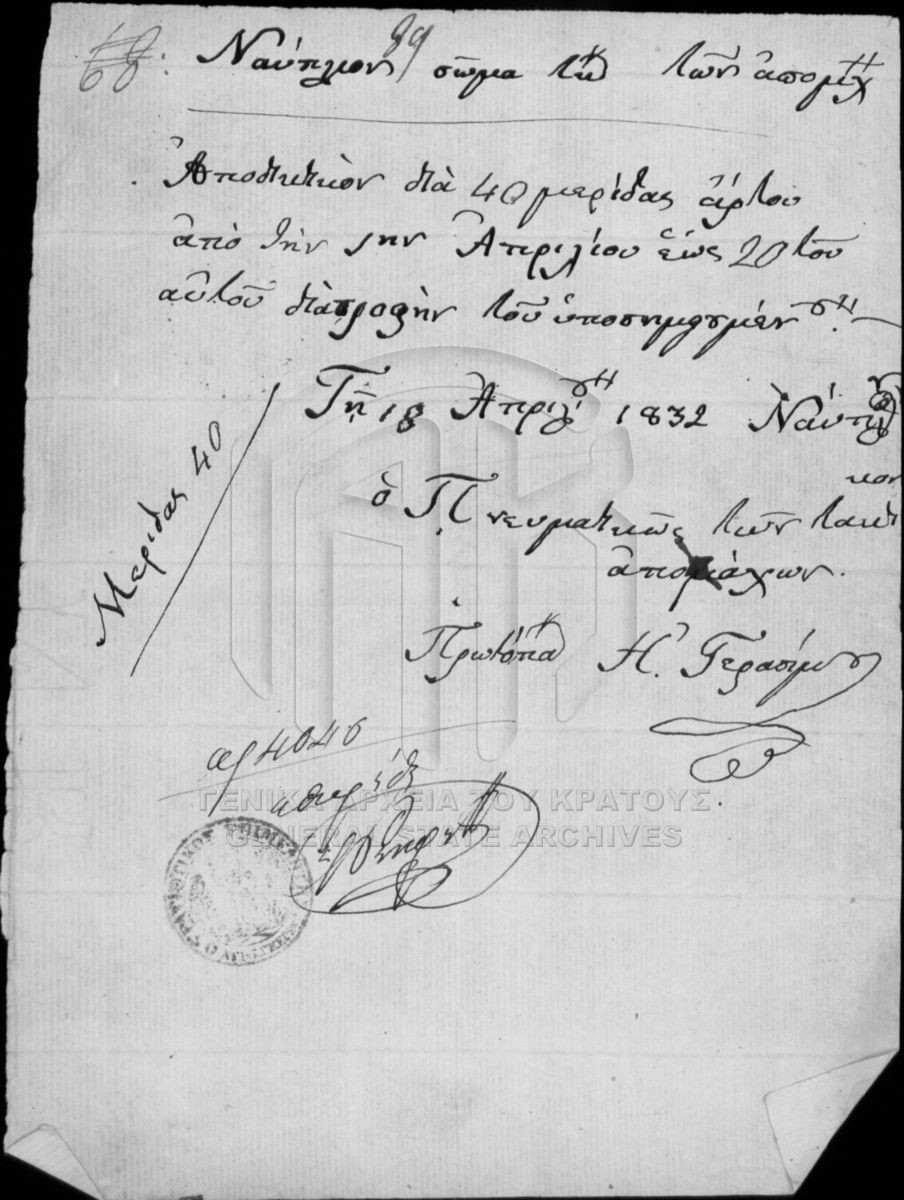 68 89
Ναύπλιον σῶμα τῶν ἀπομάχ
Ἀποδικτικὸν διὰ 40 μερίδας ἄρτου
ἀπὸ τὴν 1ην Ἀπριλίου ἕως 20 τοῦ
αὐτοῦ διατροφὴν τοῦ ὑποσημουμέν
Τῇ 18 Ἀπριλ 1832 Ναύπλ
ὁ Πνευματικῶς τῶν τακτικον
ἀπομάχων.
Πρωτόπα Η. Γερασίμου
Μερίδας 40
αρ 4046
ΓΕΝΙΚΑ ΑΡΧΕΙΑ ΤΟΥ ΚΡΑΤΟΥΣ
GENERAL STATE ARCHIVES